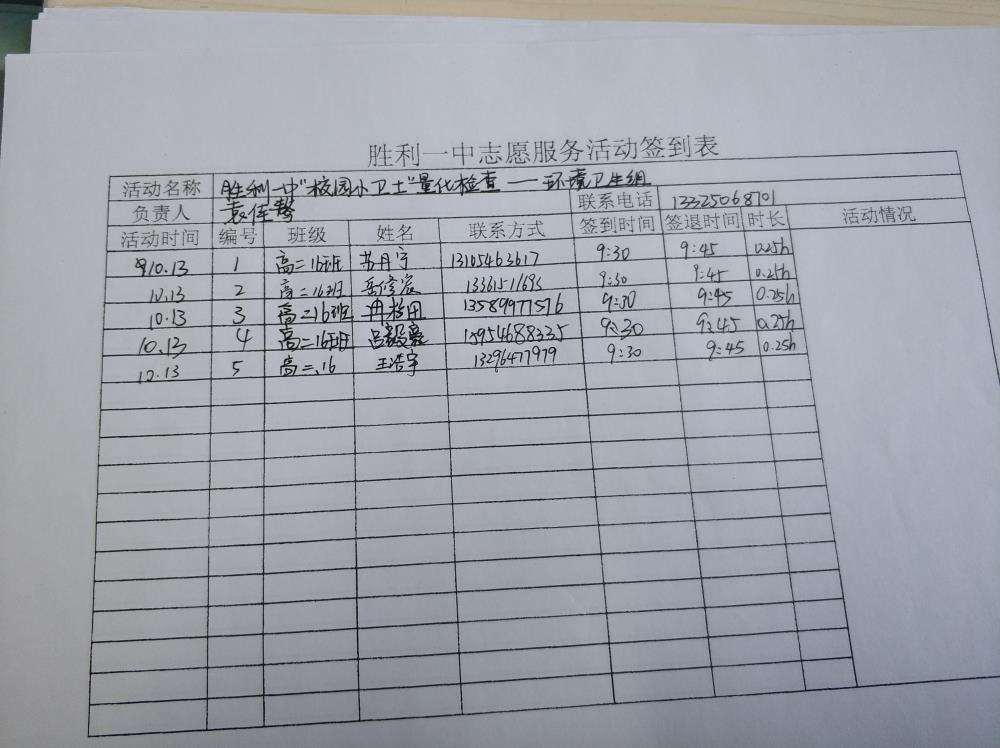 胜利一中志愿服务活动签到表
活动名称 胜利一中"校园小卫士"量化检查——环境卫生组
负责人 联系电话 13325068701
活动时间 编号 班级 姓名 联系方式 签到时间 签退时间 时长 活动情况
10.13 1 高二16班 苏丹宁 13105463617 9:30 9:45 0.25h
10.13 2 高二16班 13361511693 9:30 9:45 0.25h
10.13 3 高二16班 13589977576 9:30 9:45 0.25h
10.13 4 高二16班 15954688335 9:30 9:45 0.25h
10.13 5 高二、16 王浩宇 13296477979 9:30 9:45 0.25h